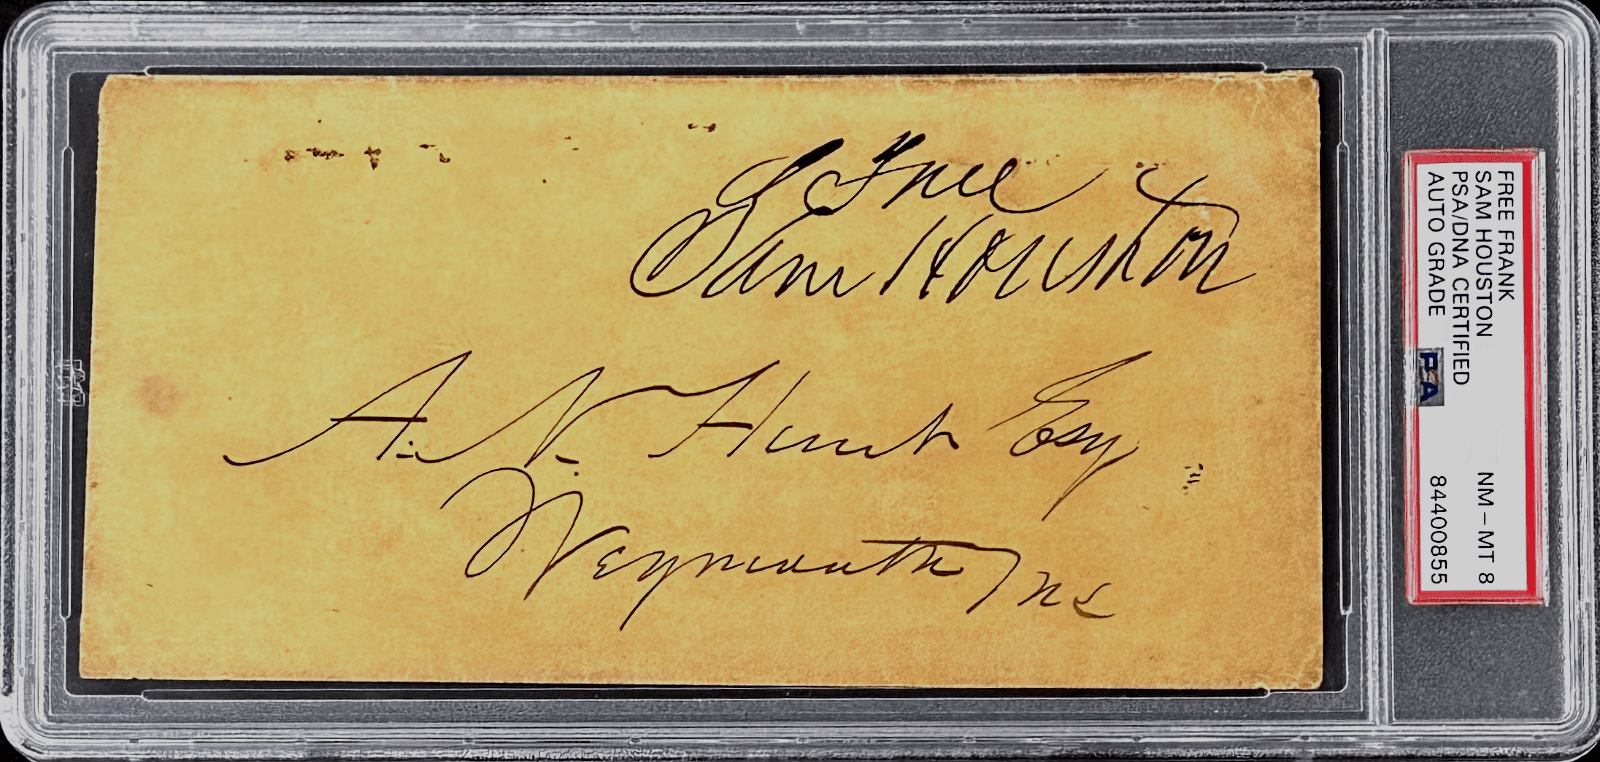 Free
Sam Houston
A. N. Hunt Esq
Weymouth Ms
FREE FRANK
SAM HOUSTON NM-MT 8
PSA/DNA CERTIFIED
AUTO GRADE 84400855
PSA